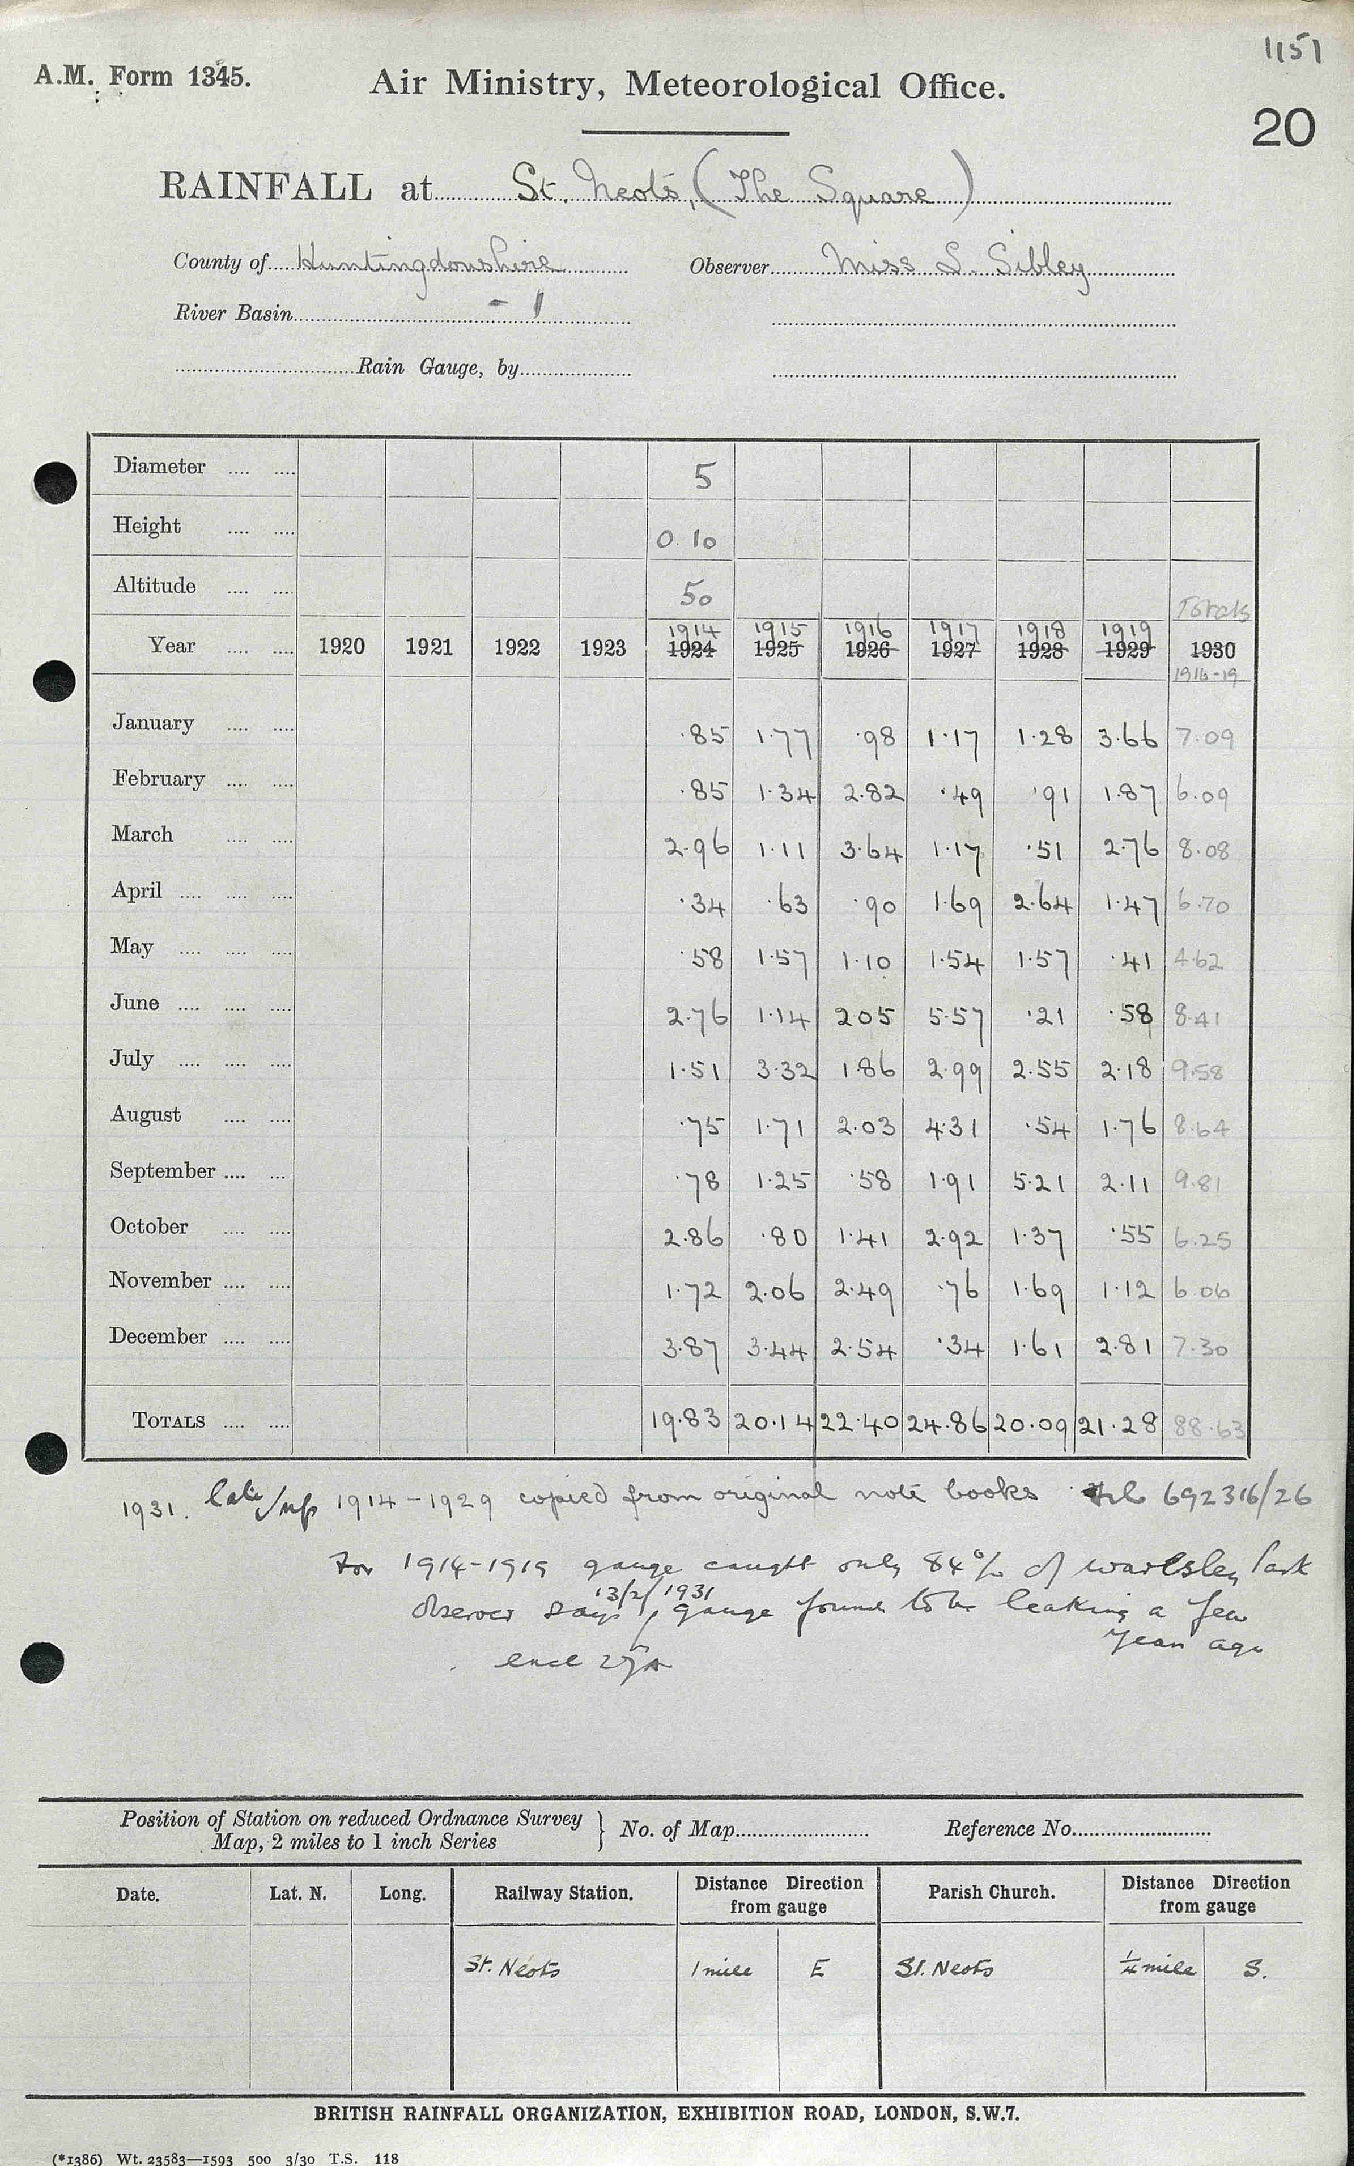 1151
A.M. Form 1345.
Air Ministry, Meteorological Office.
20
RAINFALL at St. Neots, (The Square)
County of Huntingdonshire Observer Miss S. Sibley
River Basin
Rain Gauge, by
Diameter 5
Height 0 10
Altitude 50
Totals
1914 1915 1916 1917 1918 1919
Year 1920 1921 1922 1923 1924 1925 1926 1927 1928 1929 1930
1916-19
January .85 1.77 .98 1.17 1.28 3.66 7.09
February .85 1.34 2.82 .49 .91 1.87 6.09
March 2.96 1.11 3.64 1.17 .51 2.76 8.08
April .34 .63 .90 1.69 2.64 1.47 6.70
May .58 1.57 1.10 1.54 1.57 .41 4.62
June 2.76 1.14 2.05 5.57 .21 .58 8.41
July 1.51 3.32 1.86 2.99 2.55 2.18 9.58
August .75 1.71 2.03 4.31 .54 1.76 8.64
September .78 1.25 .58 1.91 5.21 2.11 9.81
October 2.86 .80 1.41 2.92 1.37 .55 6.25
November 1.72 2.06 2.49 .76 1.69 1.12 6.06
December 3.87 3.44 2.54 .34 1.61 2.81 7.30
TOTALS 19.83 20.14 22.40 24.86 20.09 21.28 88.63
1931. 1914-1929 copied from original note books 692316/26
For 1914-1919 gauge caught only 84% of Park
13/2/1931
observer says gauge found to be leaking a few
years ago
Position of Station on reduced Ordnance Survey
Map, 2 miles to 1 inch Series } No. of Map Reference No.
Date. Lat. N. Long. Railway Station. Distance Direction from gauge Parish Church. Distance Direction from gauge
St. Neots 1 mile E St. Neots ¼ mile S.
BRITISH RAINFALL ORGANIZATION, EXHIBITION ROAD, LONDON, S.W.7.
(*1386) Wt. 23583—1593 500 3/30 T.S. 118